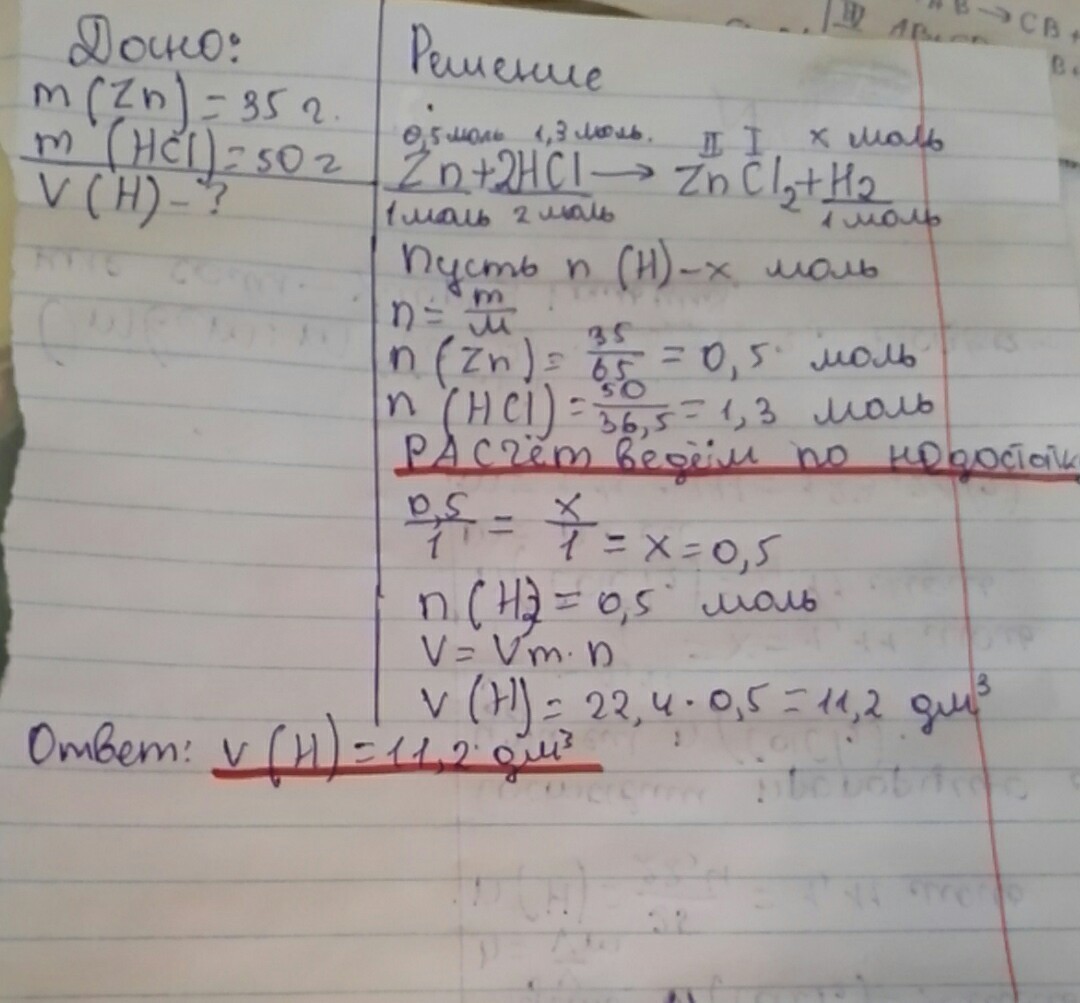 Дано:
m (Zn) = 35 г.
m (HCl) = 50 г
V (H) - ?
Решение
0,5 моль 1,3 моль. II I x моль
Zn + 2HCl → ZnCl₂ + H₂
1 моль 2 моль 1 моль
Пусть n (H) - x моль
n = m/M
n (Zn) = 35/65 = 0,5 моль
n (HCl) = 50/36,5 = 1,3 моль
РАСчёт ведём по
0,5/1 = x/1 = x = 0,5
n (H₂) = 0,5 моль
V = Vm · n
V (H) = 22,4 · 0,5 = 11,2 дм³
Ответ: V (H) = 11,2 дм³
B → CB +